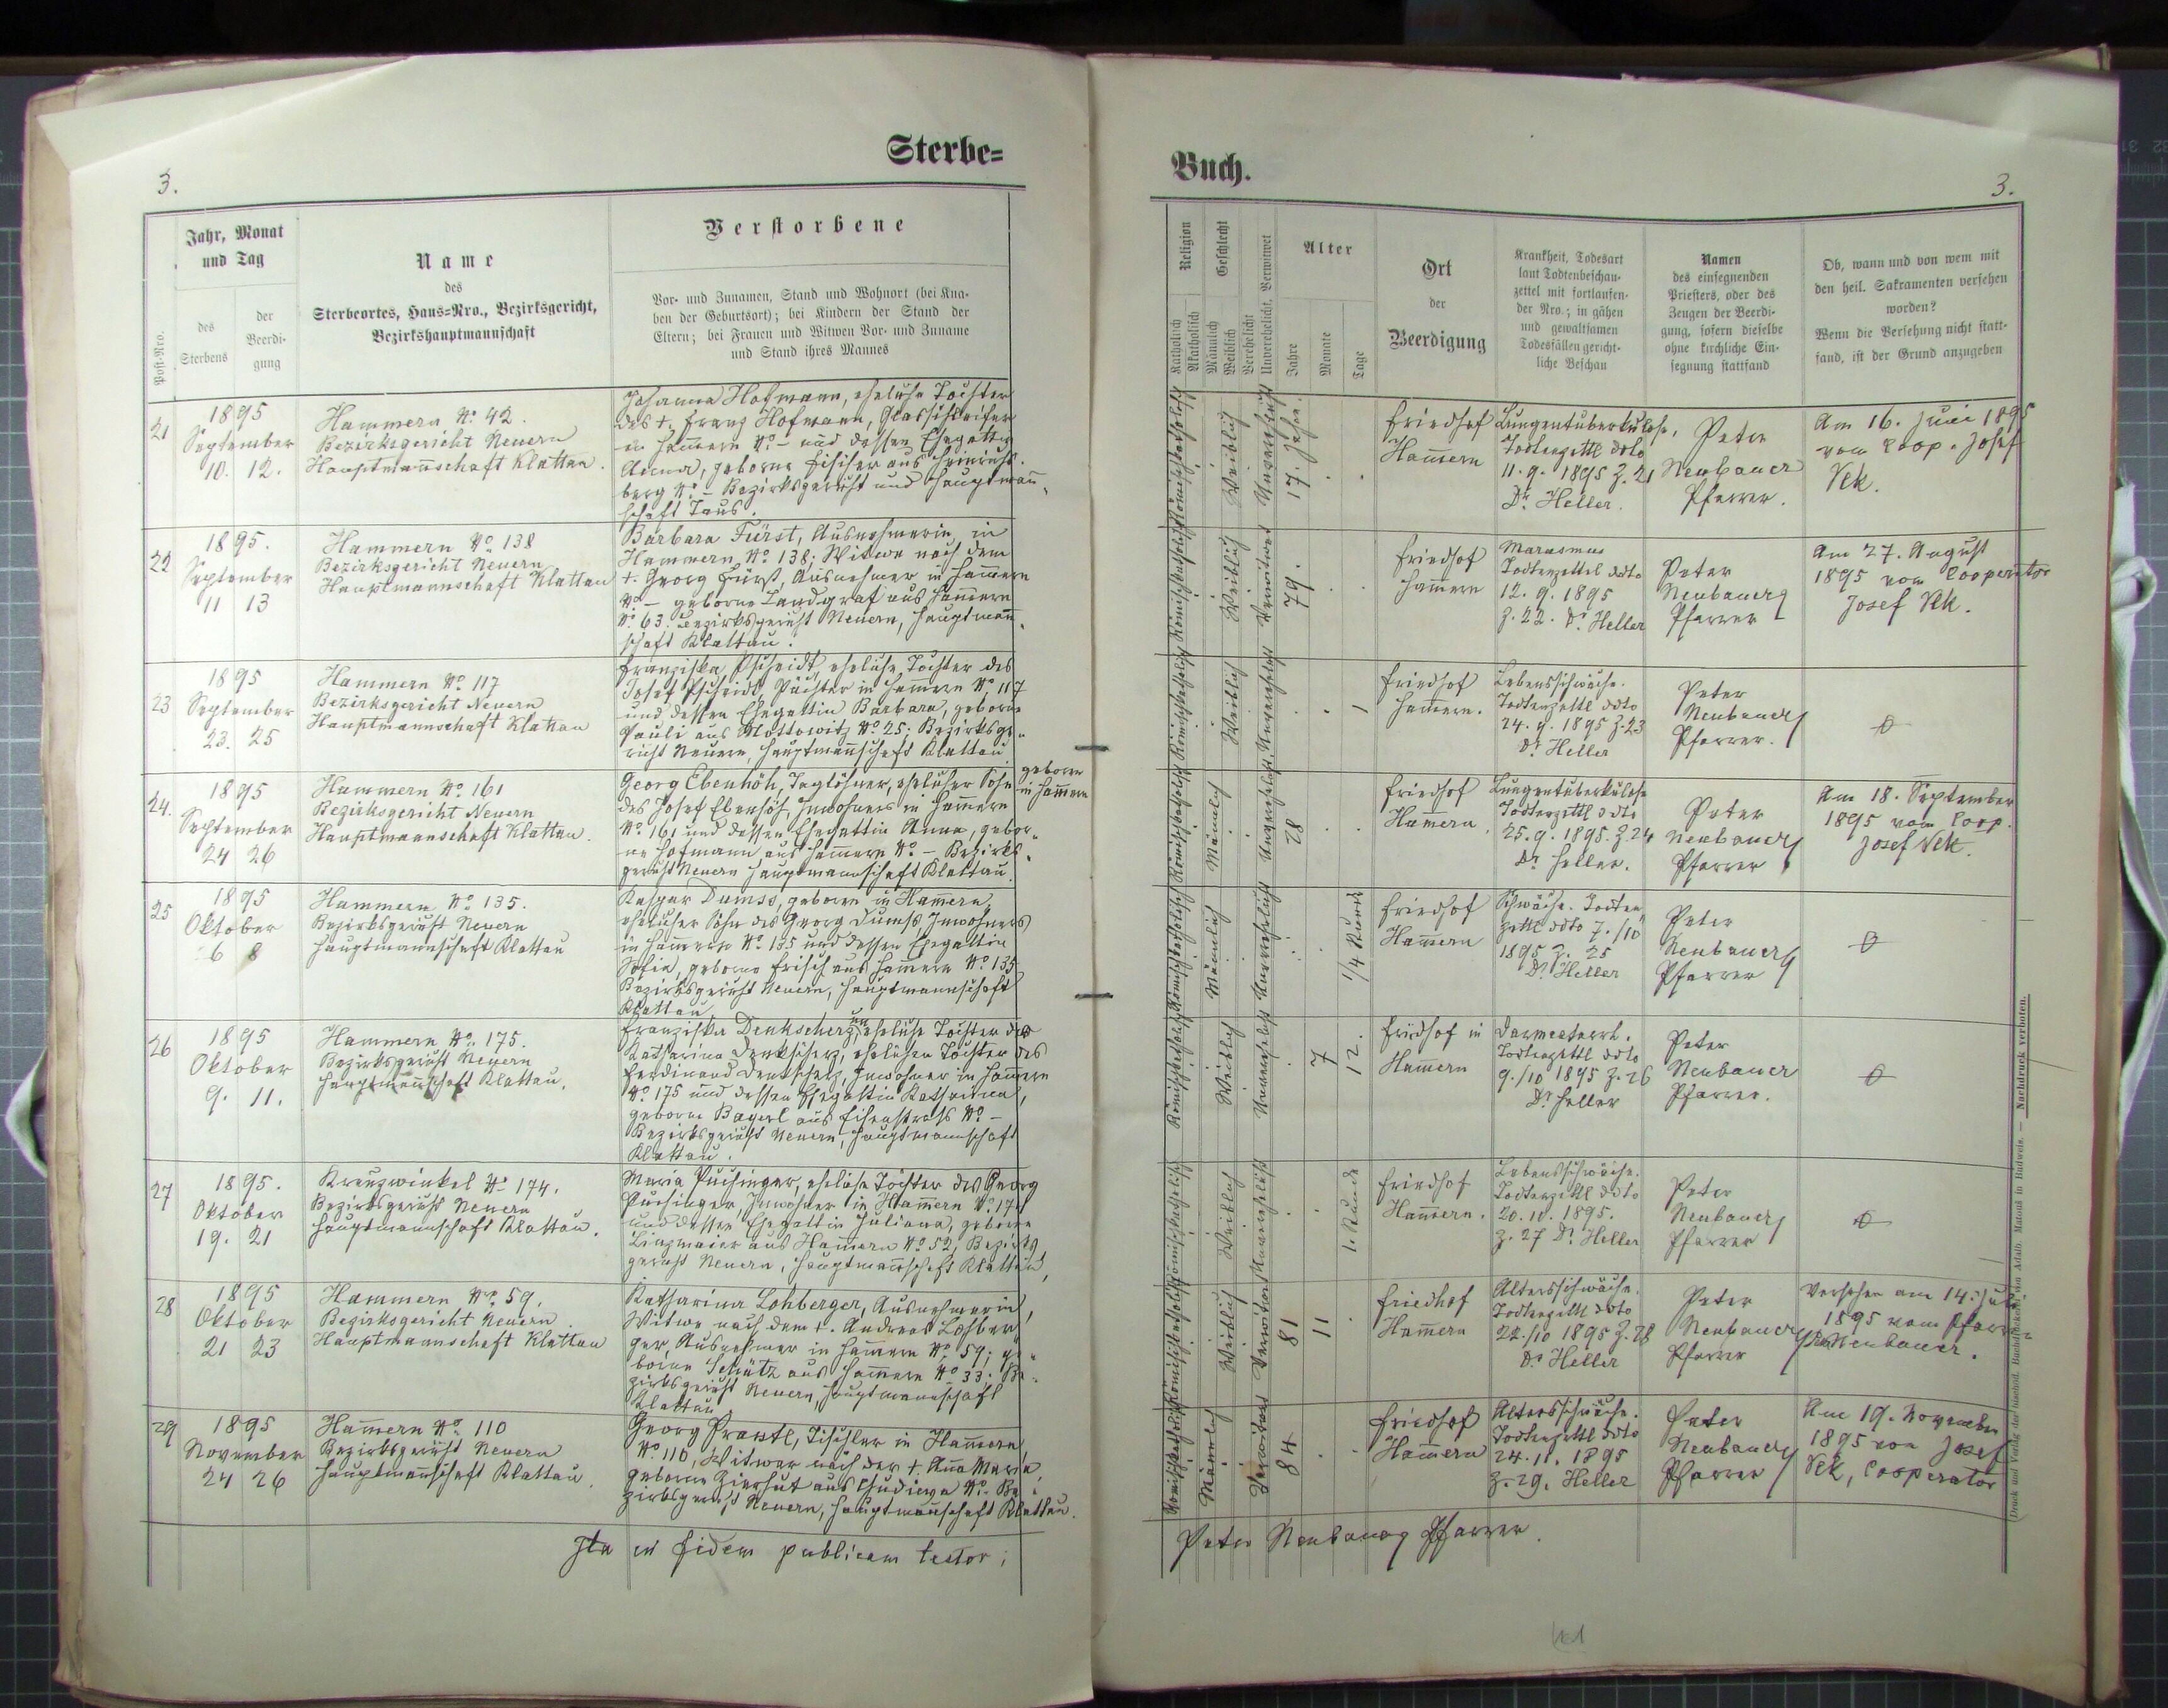 Sterbe=
3.
Jahr, Monat
und Tag
Post-Nro.
des
Sterbens
der
Beerdi-
gung
Name
des
Sterbeortes, Haus-Nro., Bezirksgericht,
Bezirkshauptmannschaft
Verstorbene
Vor- und Zunamen, Stand und Wohnort (bei Kna-
ben der Geburtsort); bei Kindern der Stand der
Eltern; bei Frauen und Witwen Vor- und Zuname
und Stand ihres Mannes
21
1895
September
10. 12.
Hammern No. 42.
Bezirksgericht Neuern
Hauptmannschaft Klattau.
Johanna Hofmann, eheliche Tochter
des +. Franz Hofmann, Glasschleifer
in Hammern No. – und dessen Ehegattin
Anna, geborne Fischer aus
berg No. – Bezirksgericht und Hauptmann-
schaft Taus.
22
1895.
September
11 13
Hammern No. 138
Bezirksgericht Neuern
Hauptmannschaft Klattau
Barbara Fürst, Ausnehmerin in
Hammern No. 138; Witwe nach dem
+. Georg Fürst, Ausnehmer in Hammern
No. – geborne Landgraf aus Hammern
No. 63. Bezirksgericht Neuern, Hauptmann-
schaft Klattau.
23
1895
September
23. 25
Hammern No. 117
Bezirksgericht Neuern
Hauptmannschaft Klattau
Franziska Pscheidt, eheliche Tochter des
Josef Pscheidt, Pächter in Hammern No. 117
und dessen Ehegattin Barbara, geborne
Pauli aus Mottowitz No. 25; Bezirksge-
richt Neuern, Hauptmannschaft Klattau
24.
1895
September
24 26
Hammern No. 161
Bezirksgericht Neuern
Hauptmannschaft Klattau.
Georg Ebenhöh, Taglöhner, ehelicher Sohn geboren in Hammern
des Josef Ebenhöh, Inwohners in Hammern
No. 161 und dessen Ehegattin Anna, gebor-
ne Hofmann aus Hammern No. – Bezirks-
gericht Neuern Hauptmannschaft Klattau.
25
1895
Oktober
6 8
Hammern No. 135.
Bezirksgericht Neuern
Hauptmannschaft Klattau
Kaspar Dumss, geboren in Hammern,
ehelicher Sohn des Georg Dumss, Inwohners
in Hammern No. 135 und dessen Ehegattin
Sofia, geborne Frisch aus Hammern No. 135
Bezirksgericht Neuern, Hauptmannschaft
Klattau
26
1895
Oktober
9. 11.
Hammern No. 175.
Bezirksgericht Neuern
Hauptmannschaft Klattau.
Franziska Denkscherz, uneheliche Tochter der
Katharina Denkscherz, ehelichen Tochter des
Ferdinand Denkscherz, Inwohner in Hammern
No. 175 und dessen Ehegattin Katharina,
geborne Bayerl aus Eisenstrass No. –
Bezirksgericht Neuern, Hauptmannschaft
Klattau.
27
1895.
Oktober
19. 21
Kreuzwinkel No. 174.
Bezirksgericht Neuern
Hauptmannschaft Klattau.
Maria Puchinger, eheliche Tochter des Georg
Puchinger, Inwohner in Hammern No. 174
und dessen Ehegattin Juliana, geborne
Linzmaier aus Hammern No. 52, Bezirks
gericht Neuern, Hauptmannschaft Klattau,
28
1895
Oktober
21 23
Hammern No. 59.
Bezirksgericht Neuern
Hauptmannschaft Klattau
Katharina Lohberger, Ausnehmerin,
Witwe nach dem +. Andreas Lohber-
ger, Ausnehmer in Hammern No. 59; ge-
borne Schütz aus Hammern No. 33; Be-
zirksgericht Neuern, Hauptmannschaft
Klattau
29
1895
November
24 26
Hammern No. 110
Bezirksgericht Neuern
Hauptmannschaft Klattau.
Georg Prantl, Tischler in Hammern
No. 110, Witwer nach der +. Anna Maria,
geborne Zierhut aus Chudiwa No. – Be-
zirksgericht Neuern, Hauptmannschaft Klattau.
Ita in fidem publicam testor;
Buch.
3.
Religion
Katholisch
Akatholisch
Geschlecht
Männlich
Weiblich
Verehelicht
Unverehelicht, Verwitwet
Alter
Jahre
Monate
Tage
Ort
der
Beerdigung
Krankheit, Todesart
laut Todtenbeschau-
zettel mit fortlaufen-
der Nro.; in gähen
und gewaltsamen
Todesfällen gericht-
liche Beschau
Namen
des einsegnenden
Priesters, oder des
Zeugen der Beerdi-
gung, sofern dieselbe
ohne kirchliche Ein-
segnung stattfand
Ob, wann und von wem mit
den heil. Sakramenten versehen
worden?
Wenn die Versehung nicht statt-
fand, ist der Grund anzugeben
Römischkatholisch
Weiblich
Unverehelicht
17. Jahre.
Friedhof
Hammern
Lungentuberkulose,
Todtenzettl ddto
11. 9. 1895 Z. 21
Dr Heller.
Peter
Neubauer
Pfarrer.
Am 16. Juni 1895
vom Coop. Josef
Vek.
Römischkatholisch
Weiblich
Verwitwet
79.
Friedhof
Hammern
Marasmus
Todtenzettel ddto
12. 9. 1895
Z. 22. Dr Heller
Peter
Neubauer
Pfarrer
Am 27. August
1895 vom Cooperator
Josef Vek.
Römischkatholisch
Weiblich
Unverehelicht
1
Friedhof
Hammern.
Lebensschwäche.
Todtenzettl ddto
24. 9. 1895 Z. 23
Dr Heller
Peter
Neubauer
Pfarrer.
Römischkatholisch
Männlich
Unverehelicht
28
Friedhof
Hammern
Lungentuberkulose
Todtenzettl ddto
25. 9. 1895. Z. 24
Dr Heller.
Peter
Neubauer
Pfarrer
Am 18. September
1895 vom Coop.
Josef Vek.
Römischkatholisch
Männlich
Unverehelicht
1/4 Stunde
Friedhof
Hammern
Schwäche. Todten
zettl ddto 7./10
1895 Z. 25
Dr Heller
Peter
Neubauer
Pfarrer
Römischkatholisch
Weiblich
Unverehelicht
7
12.
Friedhof in
Hammern
Darmcatarrh.
Todtenzettl ddto
9./10 1895 Z. 26
Dr Heller
Peter
Neubauer
Pfarrer.
Römischkatholisch
Weiblich
Unverehelicht
1. Stunde
Friedhof
Hammern.
Lebensschwäche.
Todtenzettl ddto
20. 10. 1895.
Z. 27 Dr Heller
Peter
Neubauer
Pfarrer
Römischkatholisch
Weiblich
Verwitwet
81
11
Friedhof
Hammern
Altersschwäche.
Todtenzettl ddto
22./10 1895 Z. 28
Dr Heller
Peter
Neubauer
Pfarrer
Versehen am 14. Juli
1895 vom Pfarrer
Neubauer.
Römischkatholisch
Männlich
Verwitwet
84
Friedhof
Hammern
Altersschwäche.
Todtenzettl ddto
24. 11. 1895
Z. 29. Heller
Peter
Neubauer
Pfarrer
Am 19. November
1895 von Josef
Vek, Cooperator
Peter Neubauer Pfarrer.
Nachdruck verboten.